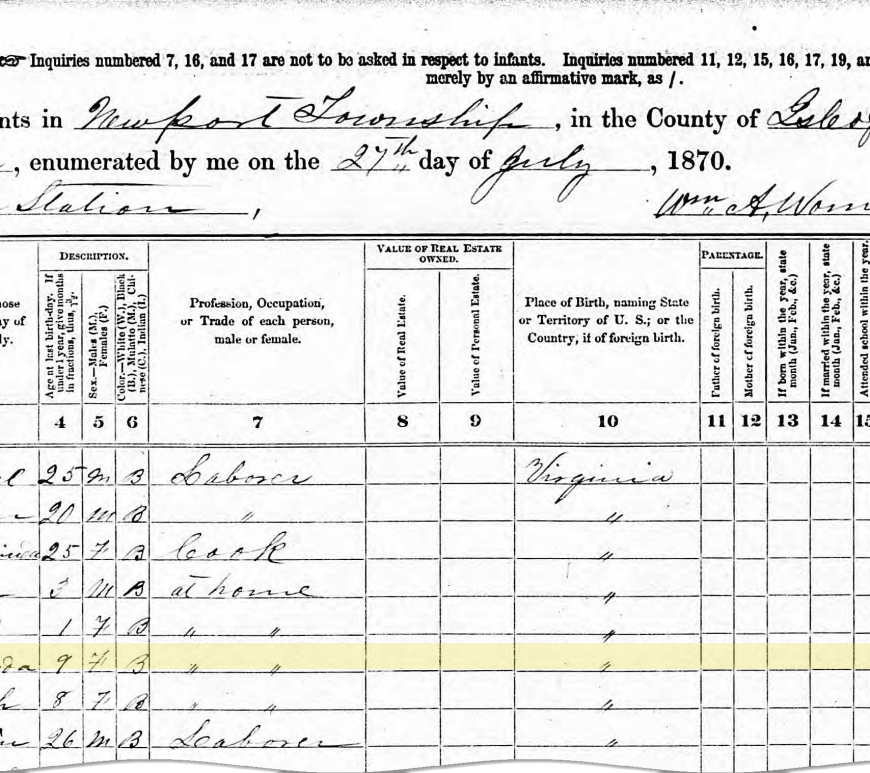 ☞ Inquiries numbered 7, 16, and 17 are not to be asked in respect to infants. Inquiries numbered 11, 12, 15, 16, 17, 19, an
merely by an affirmative mark, as /.
nts in Newport Township, in the County of
, enumerated by me on the 27th day of July, 1870.
Station,
Wm A. Wom
DESCRIPTION.
VALUE OF REAL ESTATE OWNED.
PARENTAGE.
hose
ay of
ly.
Age at last birth-day. If under 1 year, give months in fractions, thus, 3/12.
Sex.—Males (M.), Females (F.)
Color.—White (W.), Black (B.), Mulatto (M.), Chinese (C.), Indian (I.)
Profession, Occupation, or Trade of each person, male or female.
Value of Real Estate.
Value of Personal Estate.
Place of Birth, naming State or Territory of U. S.; or the Country, if of foreign birth.
Father of foreign birth.
Mother of foreign birth.
If born within the year, state month (Jan., Feb., &c.)
If married within the year, state month (Jan., Feb., &c.)
Attended school within the year.
4 5 6 7 8 9 10 11 12 13 14 15
25 M B Laborer Virginia
20 M B " "
25 F B Cook "
3 M B at home "
1 F B " " "
da 9 F B " " "
h 8 F B " " "
26 M B Laborer "